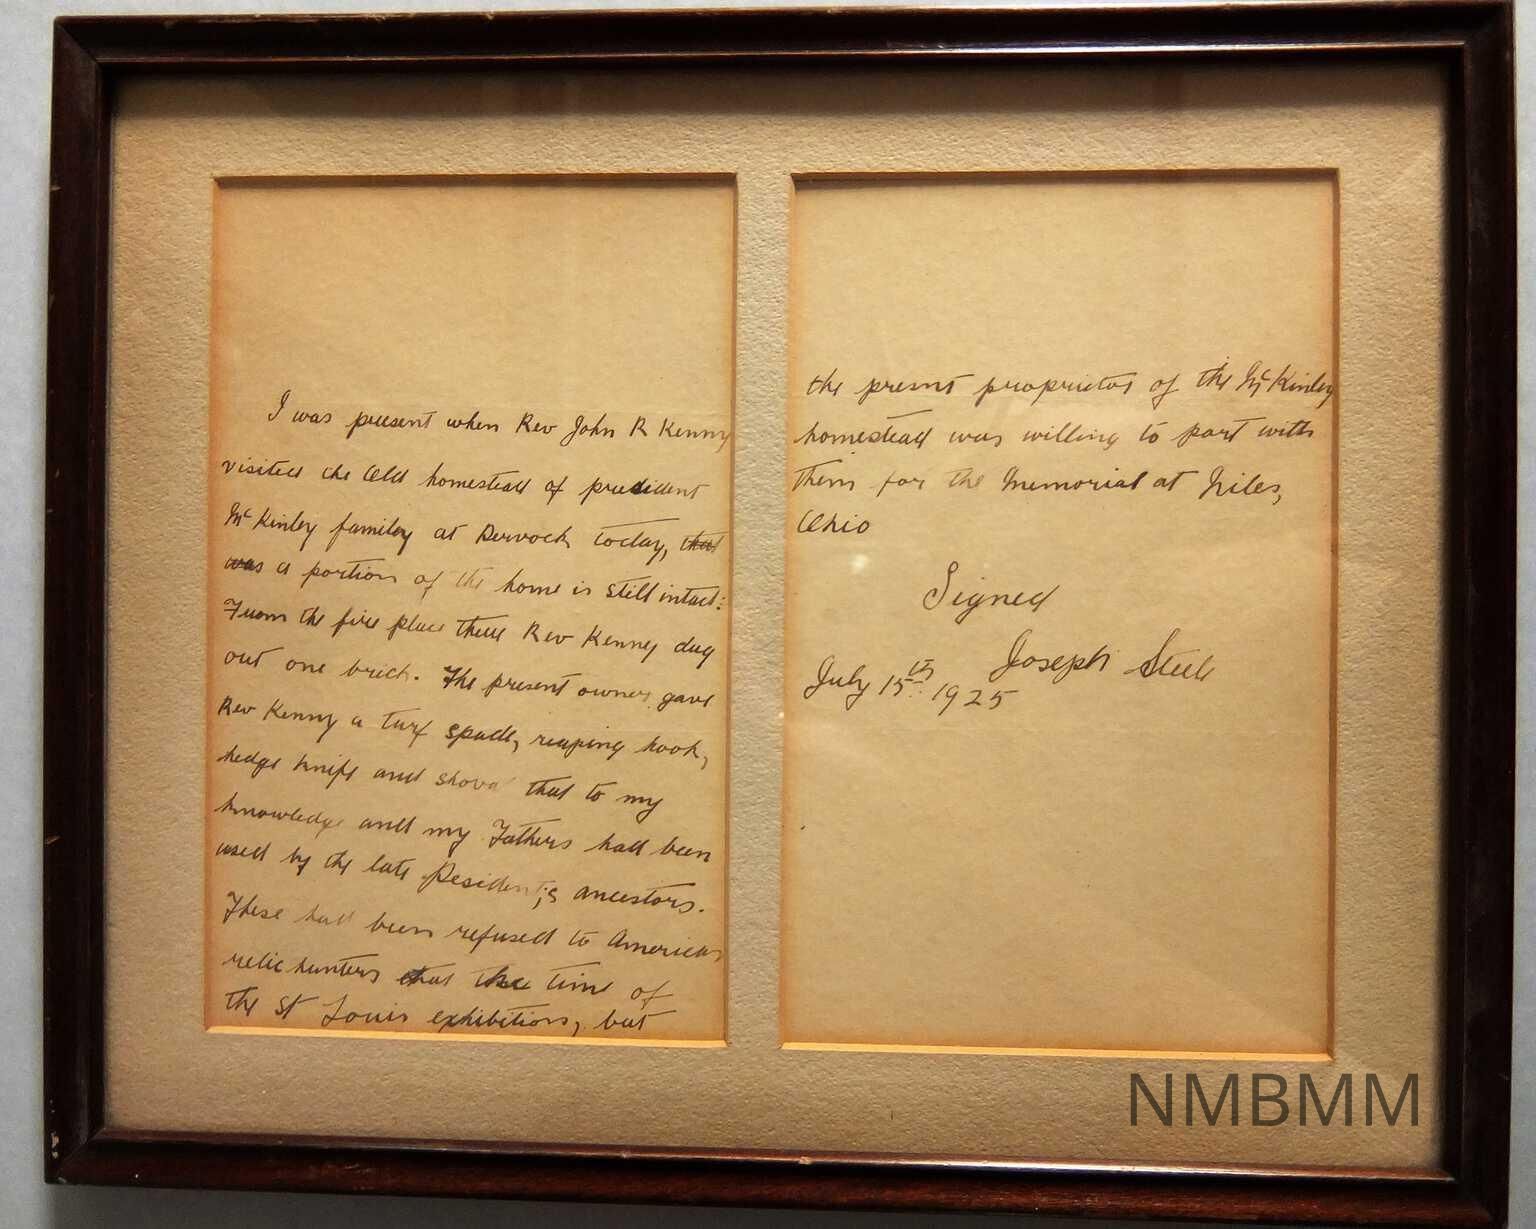 I was present when Rev John R Kenny
visited the Old homestead of president
McKinley family at Dervock today, that
was a portion of the home is still intact:
From the fire place there Rev Kenney dug
out one brick. The present owner gave
Rev Kenny a turf spade, reaping hook,
hedge knife and shovel that to my
knowledge and my Fathers had been
used by the late President,s ancestors.
These had been refused to American
relic hunters at the time of
the St Louis exhibition, but
the present proprietor of the McKinley
homestead was willing to part with
them for the Memorial at Niles,
Ohio
Signed
Joseph Steele
July 15th 1925
NMBMM